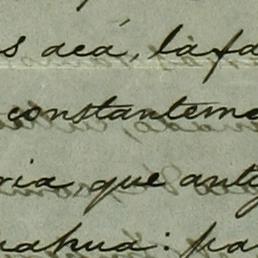 s acá, la fa
constanteme
ria que ant
uahua: pa